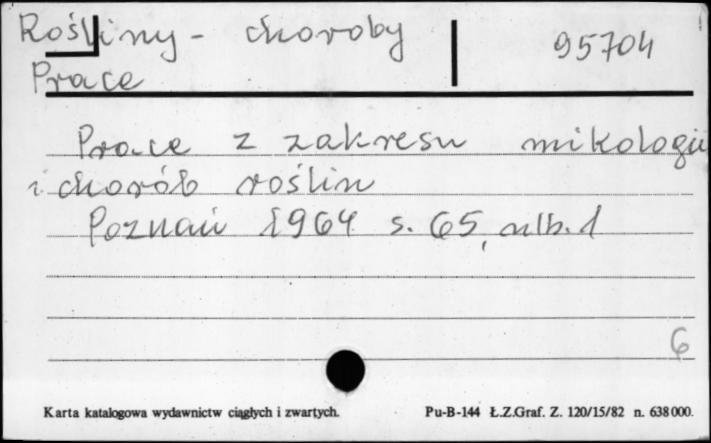 Rośliny - choroby
95704
Prace
Prace z zakresu mikologii
i chorób roślin
Poznań 1964 s. 65, nlb. 1
6
Karta katalogowa wydawnictw ciągłych i zwartych.
Pu-B-144 Ł.Z.Graf. Z. 120/15/82 n. 638000.